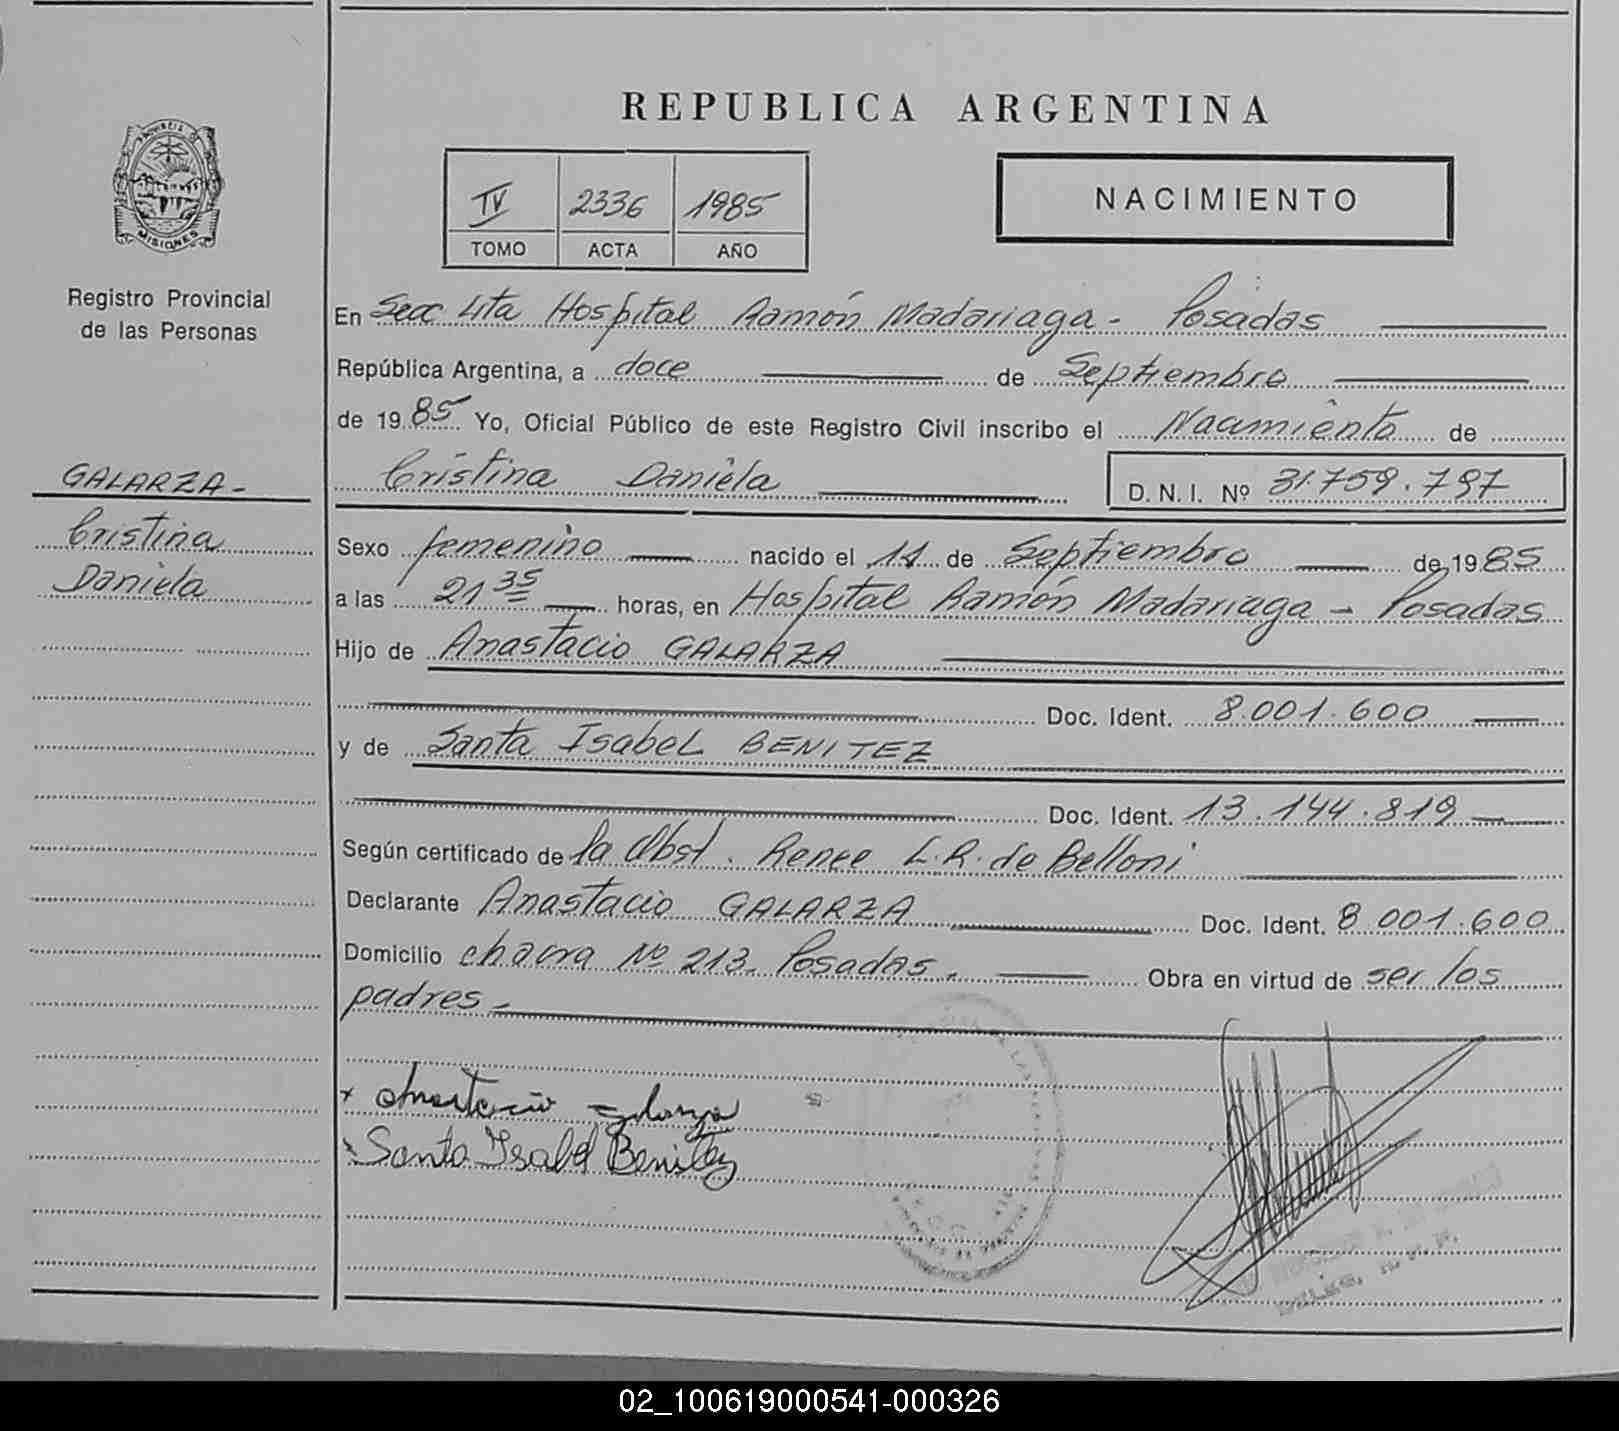 REPUBLICA ARGENTINA
PROVINCIA DE
MISIONES
Registro Provincial
de las Personas
IV 2336 1985
TOMO ACTA AÑO
NACIMIENTO
En Secc 4ta Hospital Ramón Madariaga - Posadas
República Argentina, a doce de Septiembre
de 1985 Yo, Oficial Público de este Registro Civil inscribo el Nacimiento de
Cristina Daniela D. N. I. Nº 31.759.797
GALARZA-
Cristina
Daniela
Sexo femenino nacido el 11 de Septiembre de 1985
a las 21 35 horas, en Hospital Ramón Madariaga - Posadas
Hijo de Anastacio GALARZA
Doc. Ident. 8.001.600
y de Santa Isabel BENITEZ
Doc. Ident. 13.144.819
Según certificado de la Obst. Renee L.R. de Belloni
Declarante Anastacio GALARZA Doc. Ident. 8.001.600
Domicilio chacra Nº 213. Posadas. Obra en virtud de ser los
padres-
x Anastacio Galarza
x Santa Isabel Benitez
02_100619000541-000326